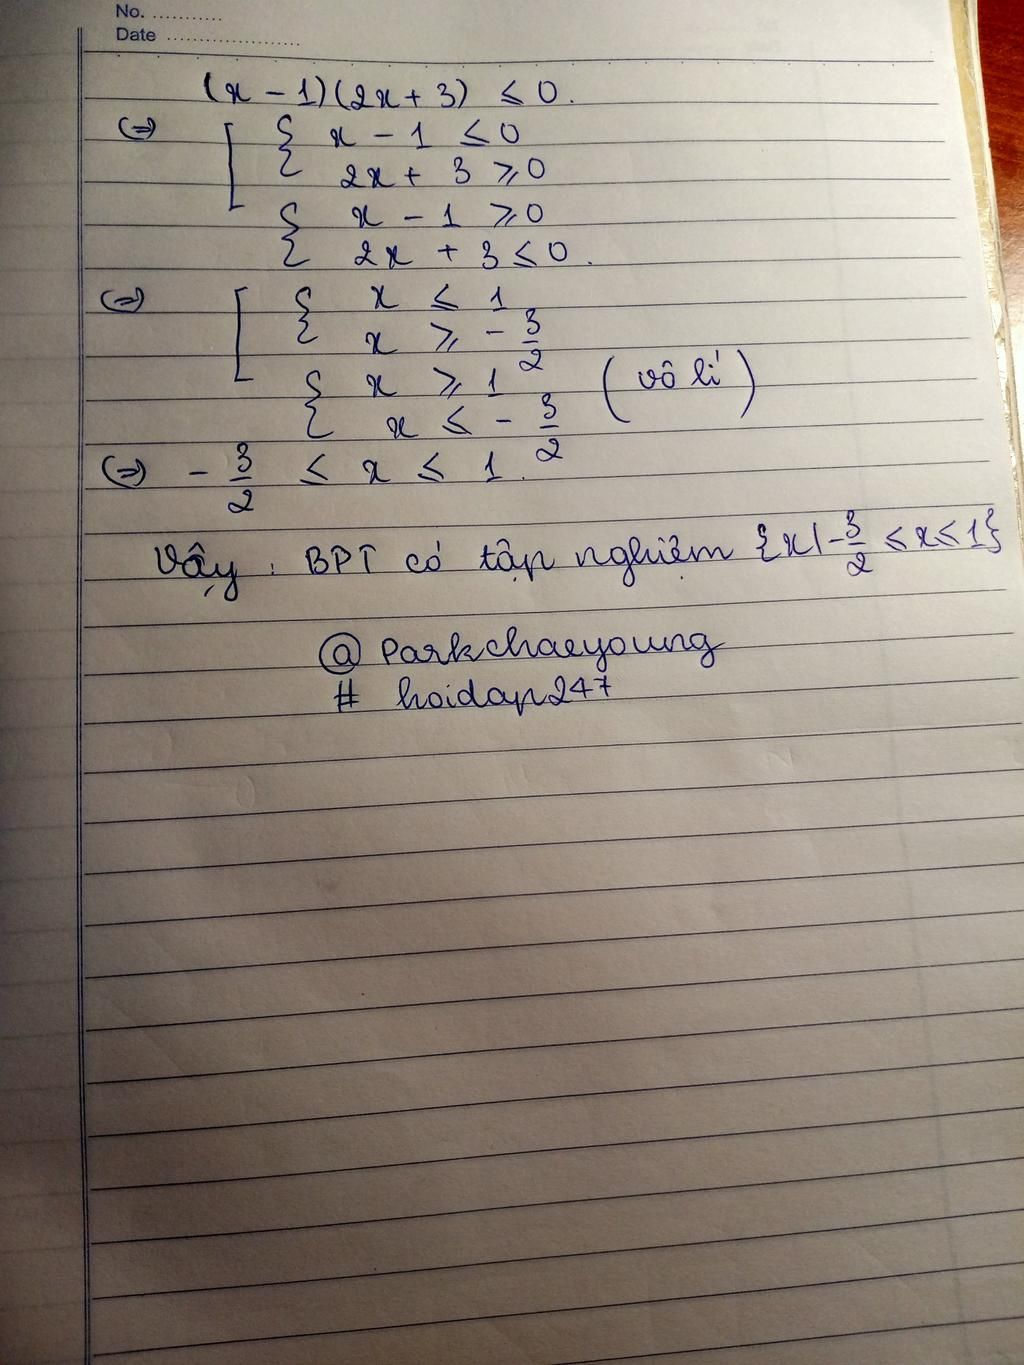 No. ............
Date ........................
(x - 1)(2x + 3) ≤ 0.
(=) [ { x - 1 ≤ 0
2x + 3 ≥ 0
{ x - 1 ≥ 0
2x + 3 ≤ 0.
(=) [ { x ≤ 1
x ≥ - 3/2
{ x ≥ 1 (vô lí)
x ≤ - 3/2
(=) - 3/2 ≤ x ≤ 1.
Vậy : BPT có tập nghiệm {x | - 3/2 ≤ x ≤ 1}
@ Parkchaeyoung
# hoidap247